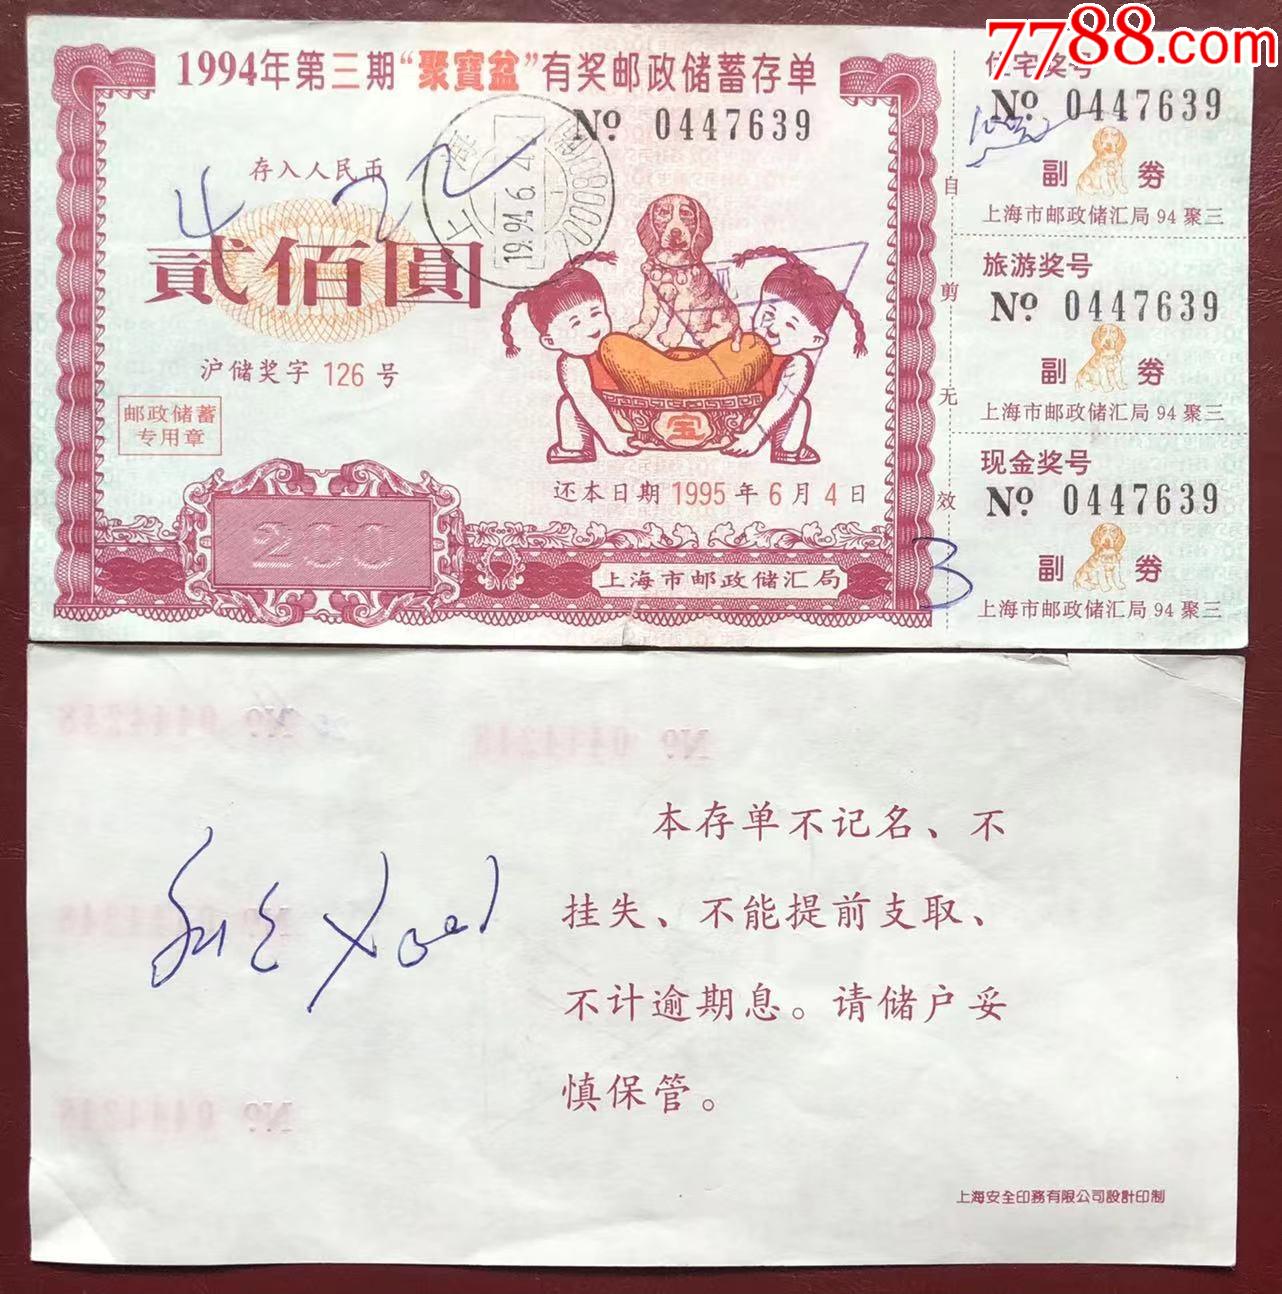 7788.com
1994年第三期“聚寶盆”有奖邮政储蓄存单
№ 0447639
存入人民币
4 2 2
贰佰圓
沪储奖字 126 号
邮政储蓄
专用章
上海
1994.6.4
200080
宝
还本日期 1995 年 6 月 4 日
200
上海市邮政储汇局
自剪无效
3
住宅奖号
№ 0447639
副 券
上海市邮政储汇局 94 聚三
旅游奖号
№ 0447639
副 券
上海市邮政储汇局 94 聚三
现金奖号
№ 0447639
副 券
上海市邮政储汇局 94 聚三
本存单不记名、不
挂失、不能提前支取、
不计逾期息。请储户妥
慎保管。
上海安全印務有限公司設計印制